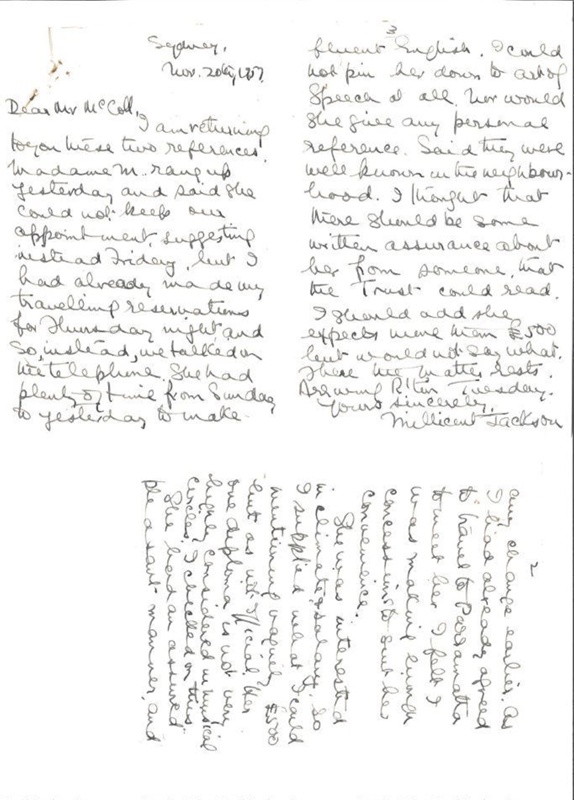 Sydney,
Nov. 20th, 1957
Dear Mr McColl,
I am returning
to you these two references.
Madame M. rang up
yesterday and said she
could not keep our
appointment, suggesting
instead Friday, but I
had already made my
travelling reservations
for Thursday night, and
so, instead, we talked on
the telephone. She had
plenty of time from Sunday
to yesterday to make
2
any change earlier. As
I had already agreed
to travel to Parramatta
to meet her I felt I
was making enough
concessions to suit her
convenience.
She was interested
in climate & salary. So
I supplied what I could
mentioning vaguely £500
but as not official. Her
one diploma is not very
highly considered in musical
circles. I checked on this.
She had an assured
pleasant manner, and
3
fluent English. I could
not pin her down to
Speech at all. Nor would
she give any personal
reference. Said they were
well known in the neighbour-
hood. I thought that
there should be some
written assurance about
her from someone, that
the Trust could read.
I should add she
expects more than £500
but would not say what.
There the matter rests.
Arriving Tuesday.
Yours sincerely,
Millicent Jackson